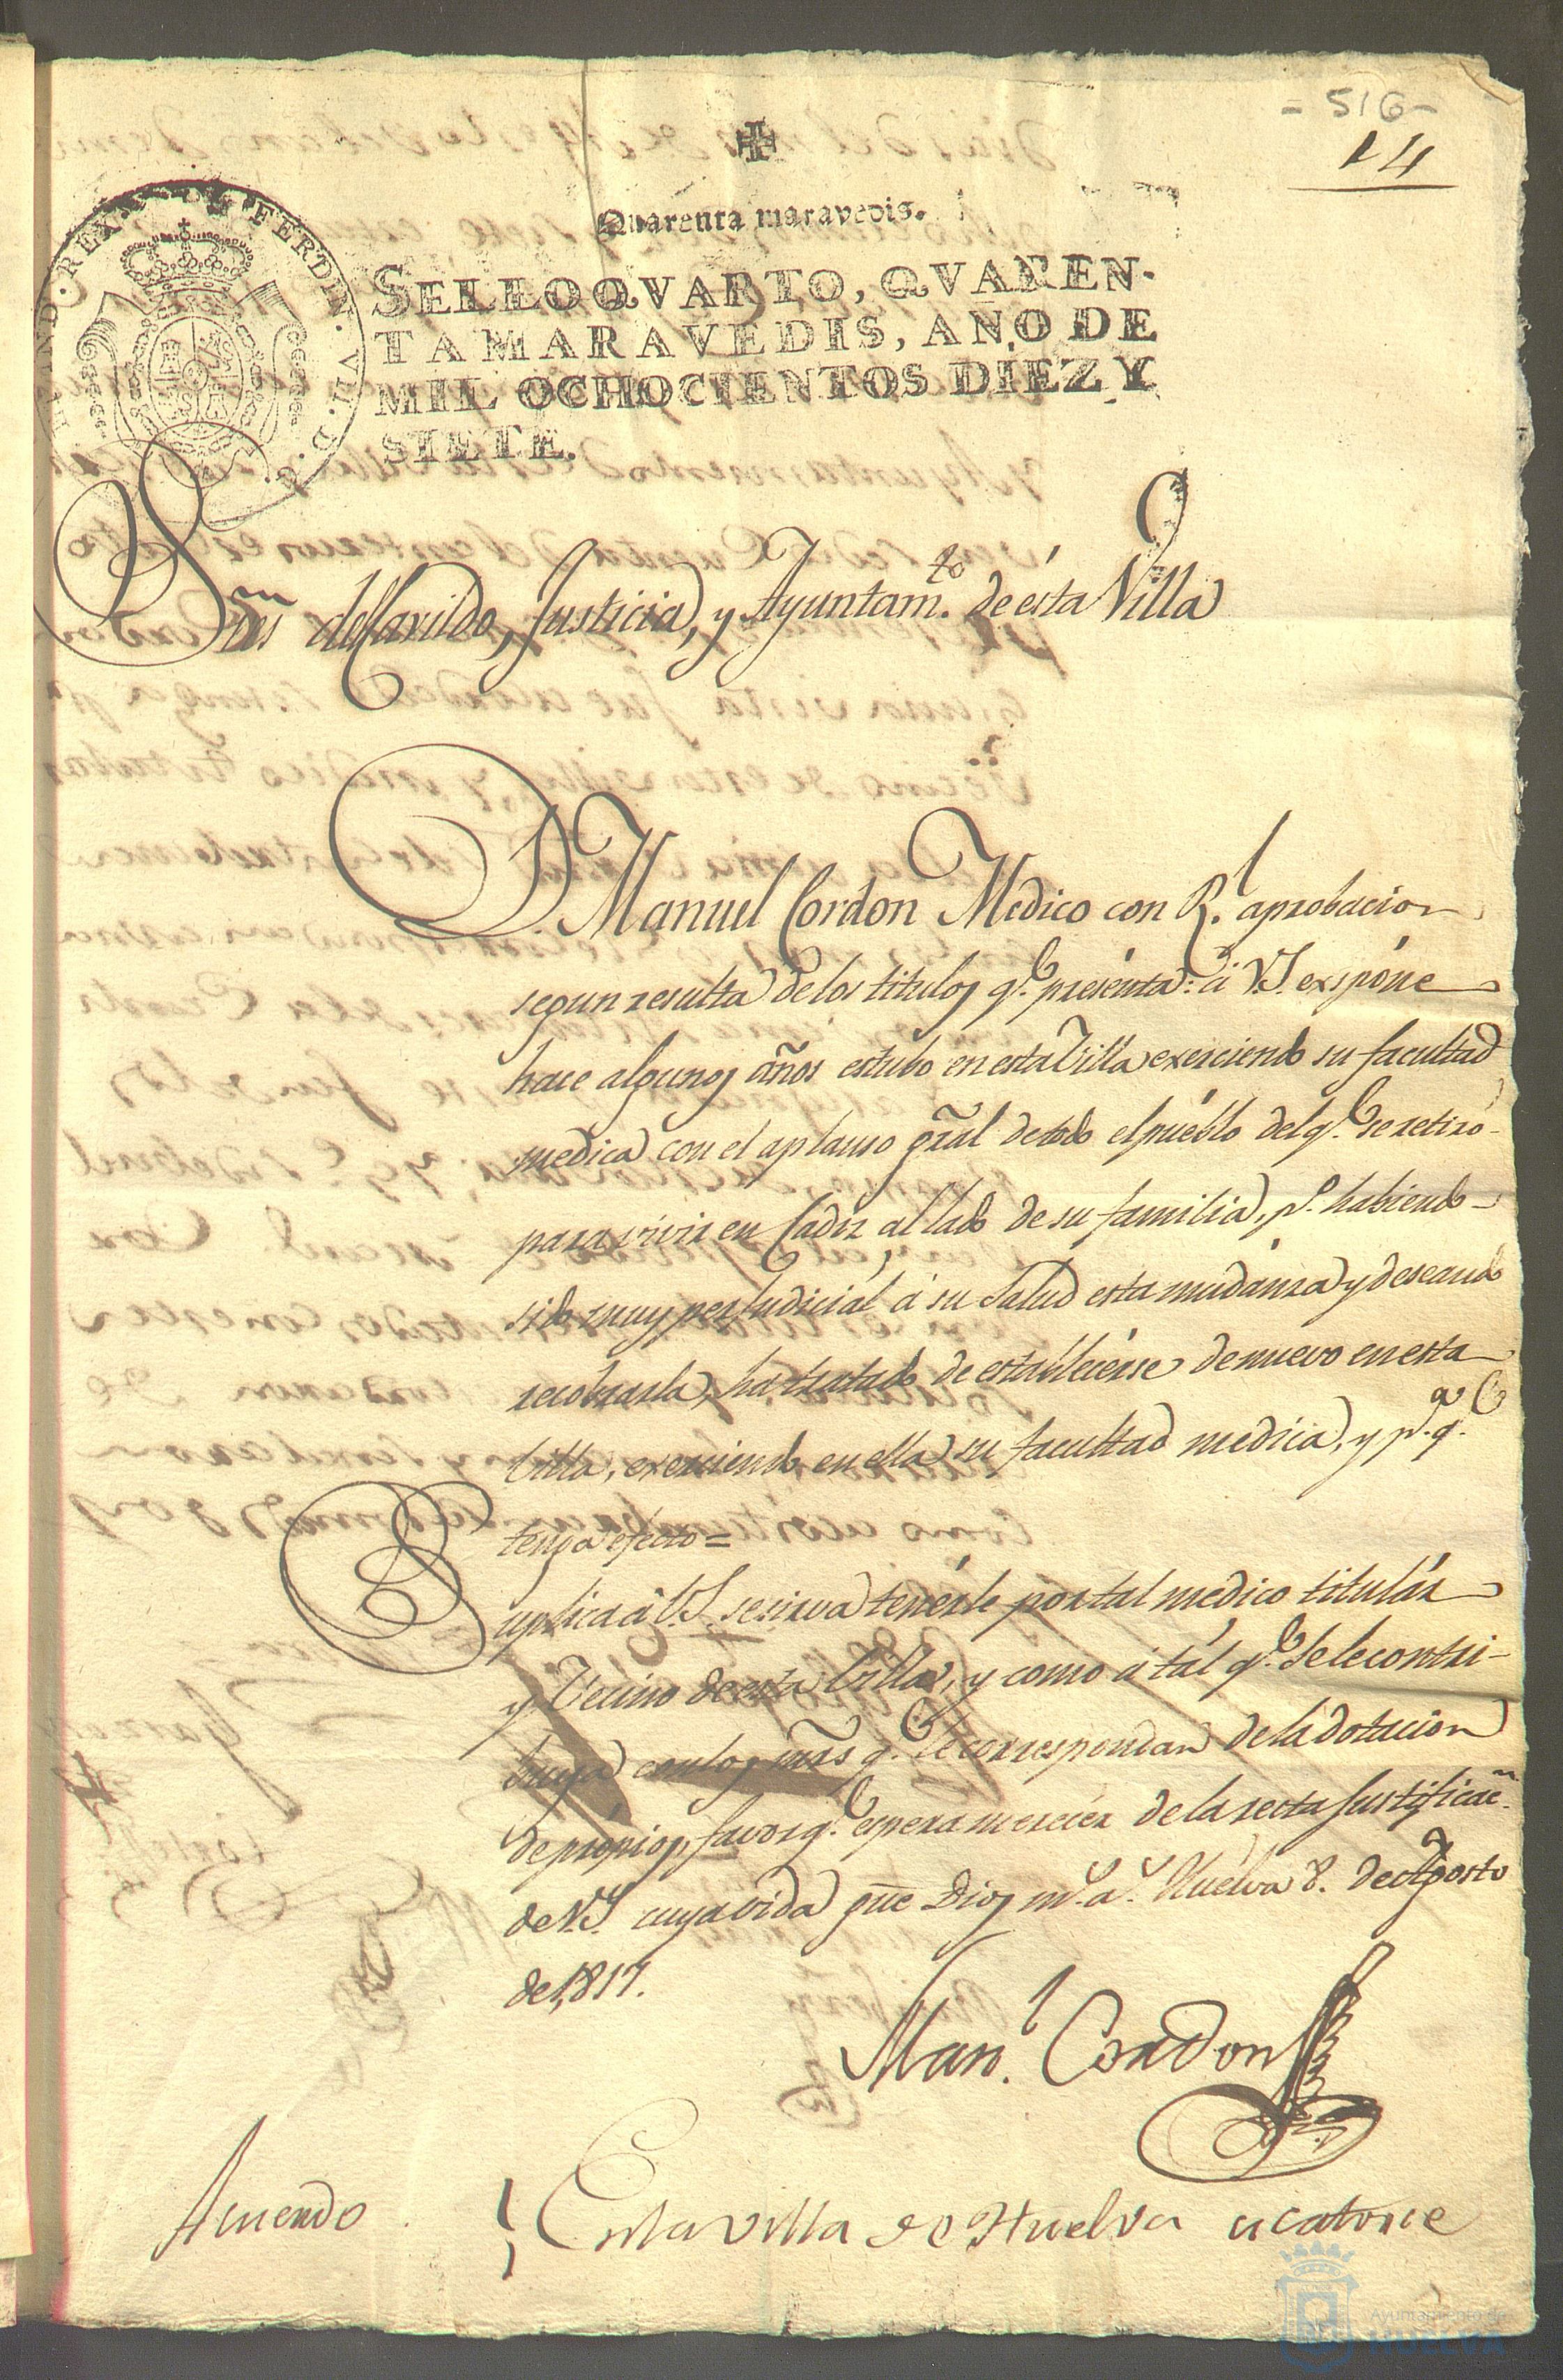 - 516 -
14
Quarenta maravedis.
SELLO QVARTO, QVAREN-
TA MARAVEDIS, AÑO DE
MIL OCHOCIENTOS DIEZ Y
SIETE.
Sres del Cavildo, Justicia, y Ayuntam.to de ésta Villa
D. Manuel Cordon Medico con R.l aprobacion
segun resulta de los titulos q.e presenta: á V.S. expóne
hace algunos años estubo en esta Villa exerciendo su facultad
medica con el aplauso gral de todo el pueblo del q.e se retiró
para vivir en Cadiz al lado de su familia, p.o habiendo
sido muy perjudicial á su Salud esta mudanza y deseando
recobrarla, ha tratado de establecerse de nuevo en esta
Villa, exerciendo en ella su facultad medica, y p.a q.e
tenga efecto =
Suplica á V.S. se sirva tenérle por tal medico titulár
y Vecino de esta Villa, y como á tál q.e se le contri-
buya con los mrs q.e le correspondan de la dotacion
de propios, favor q.e espera merecér de la recta Justificac.n
de V.S. cuya vida gue Dios m.s a.s Huelva 8. de Agosto
de 1817.
Man.l Cordon
Acuerdo
En la villa de Huelva a catorce
Ayuntamiento de
HUELVA